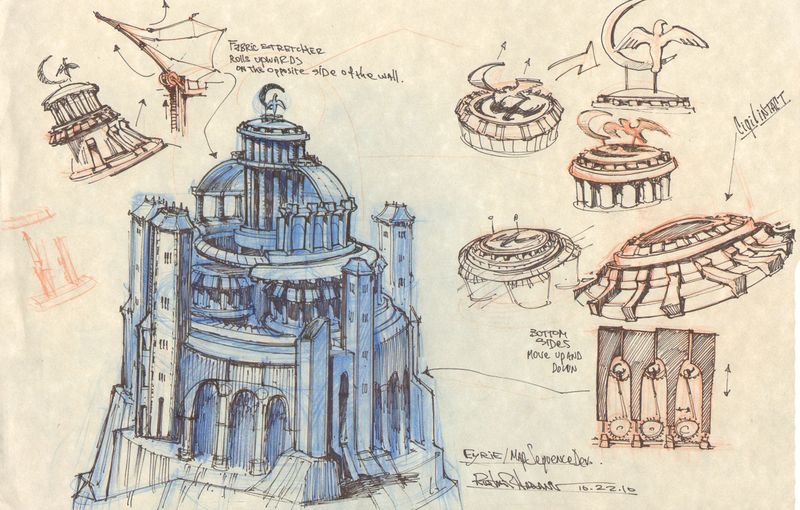 FABRIC STRETCHER
ROLLS UPWARDS
ON THE OPPOSITE SIDE OF THE WALL.
BOTTOM
SIDES
MOVE UP AND
DOWN
EYRIE/MAP SEQUENCE DEV.
10.22.10